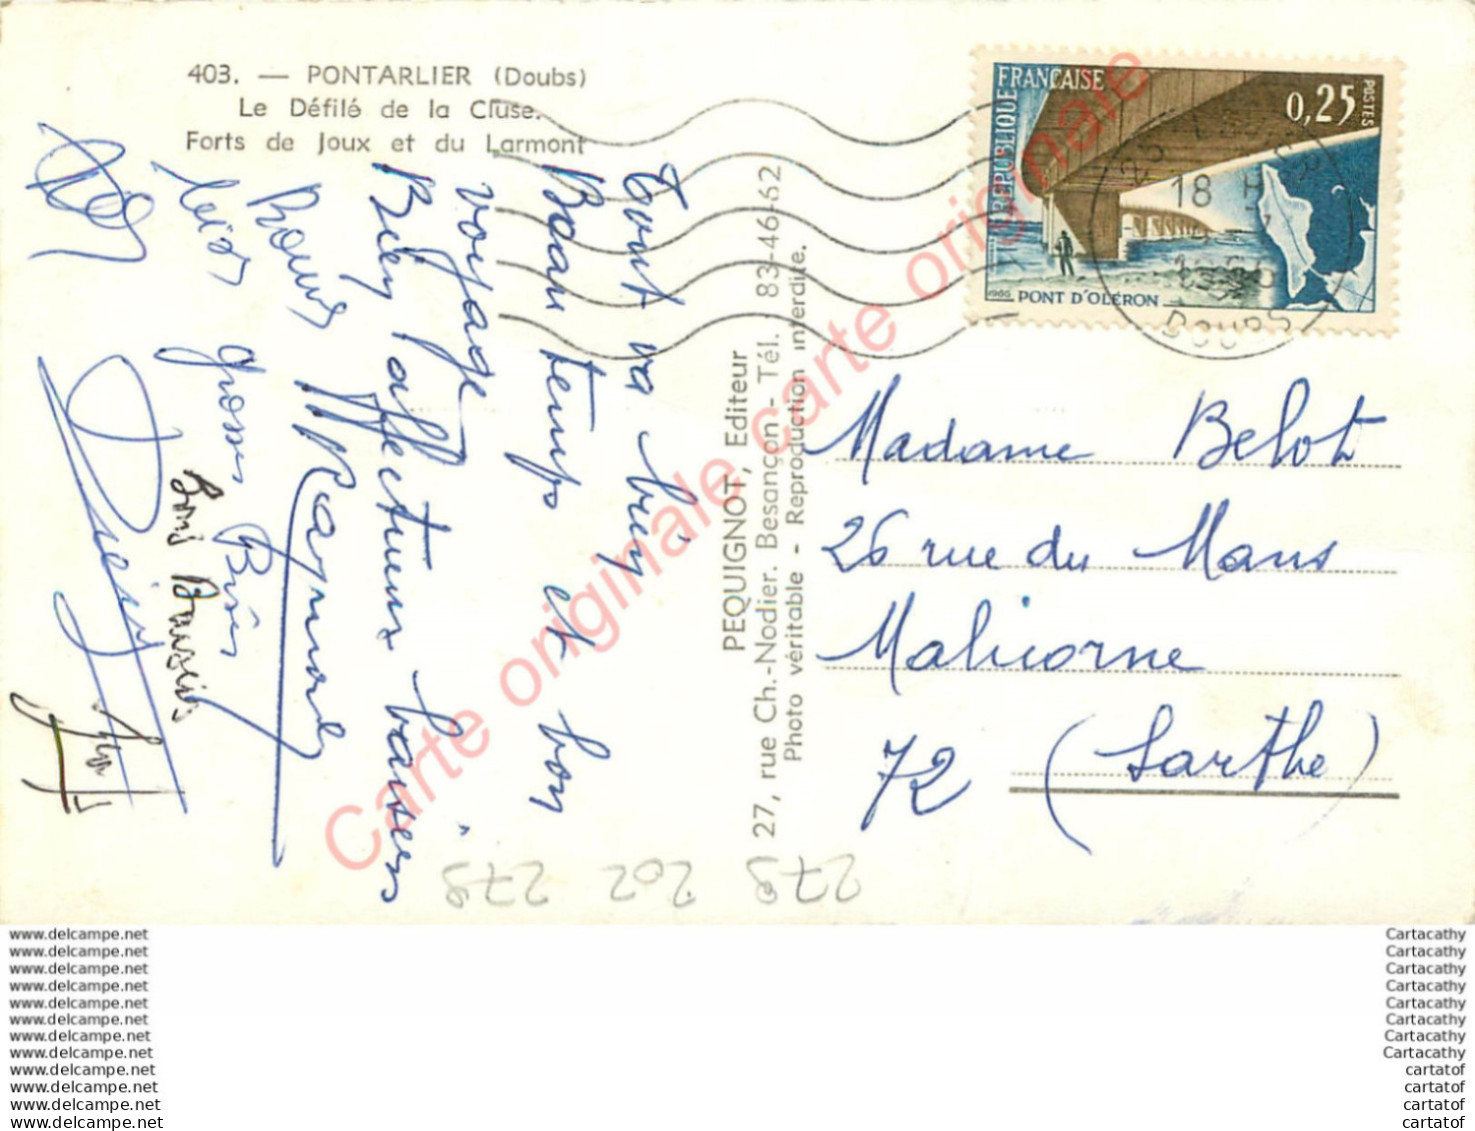 403. — PONTARLIER (Doubs)
Le Défilé de la Cluse.
Forts de Joux et du Larmont
Tout va bien
Beau temps et bon
voyage
Bien affectueux baisers
Raymond
gros
Bons Baisers
PEQUIGNOT, Editeur
27, rue Ch.-Nodier. Besançon - Tél. 83-46-62
Photo véritable - Reproduction interdite.
RÉPUBLIQUE FRANÇAISE
0,25
POSTES
1966 PONT D'OLÉRON
25
18 H
DOUBS
Madame Belot
26 rue du Mans
Malicorne
72 (Sarthe)
278 202 278
Carte originale carte originale
www.delcampe.net
www.delcampe.net
www.delcampe.net
www.delcampe.net
www.delcampe.net
www.delcampe.net
www.delcampe.net
www.delcampe.net
www.delcampe.net
www.delcampe.net
www.delcampe.net
www.delcampe.net
Cartacathy
Cartacathy
Cartacathy
Cartacathy
Cartacathy
Cartacathy
Cartacathy
Cartacathy
cartatof
cartatof
cartatof
cartatof